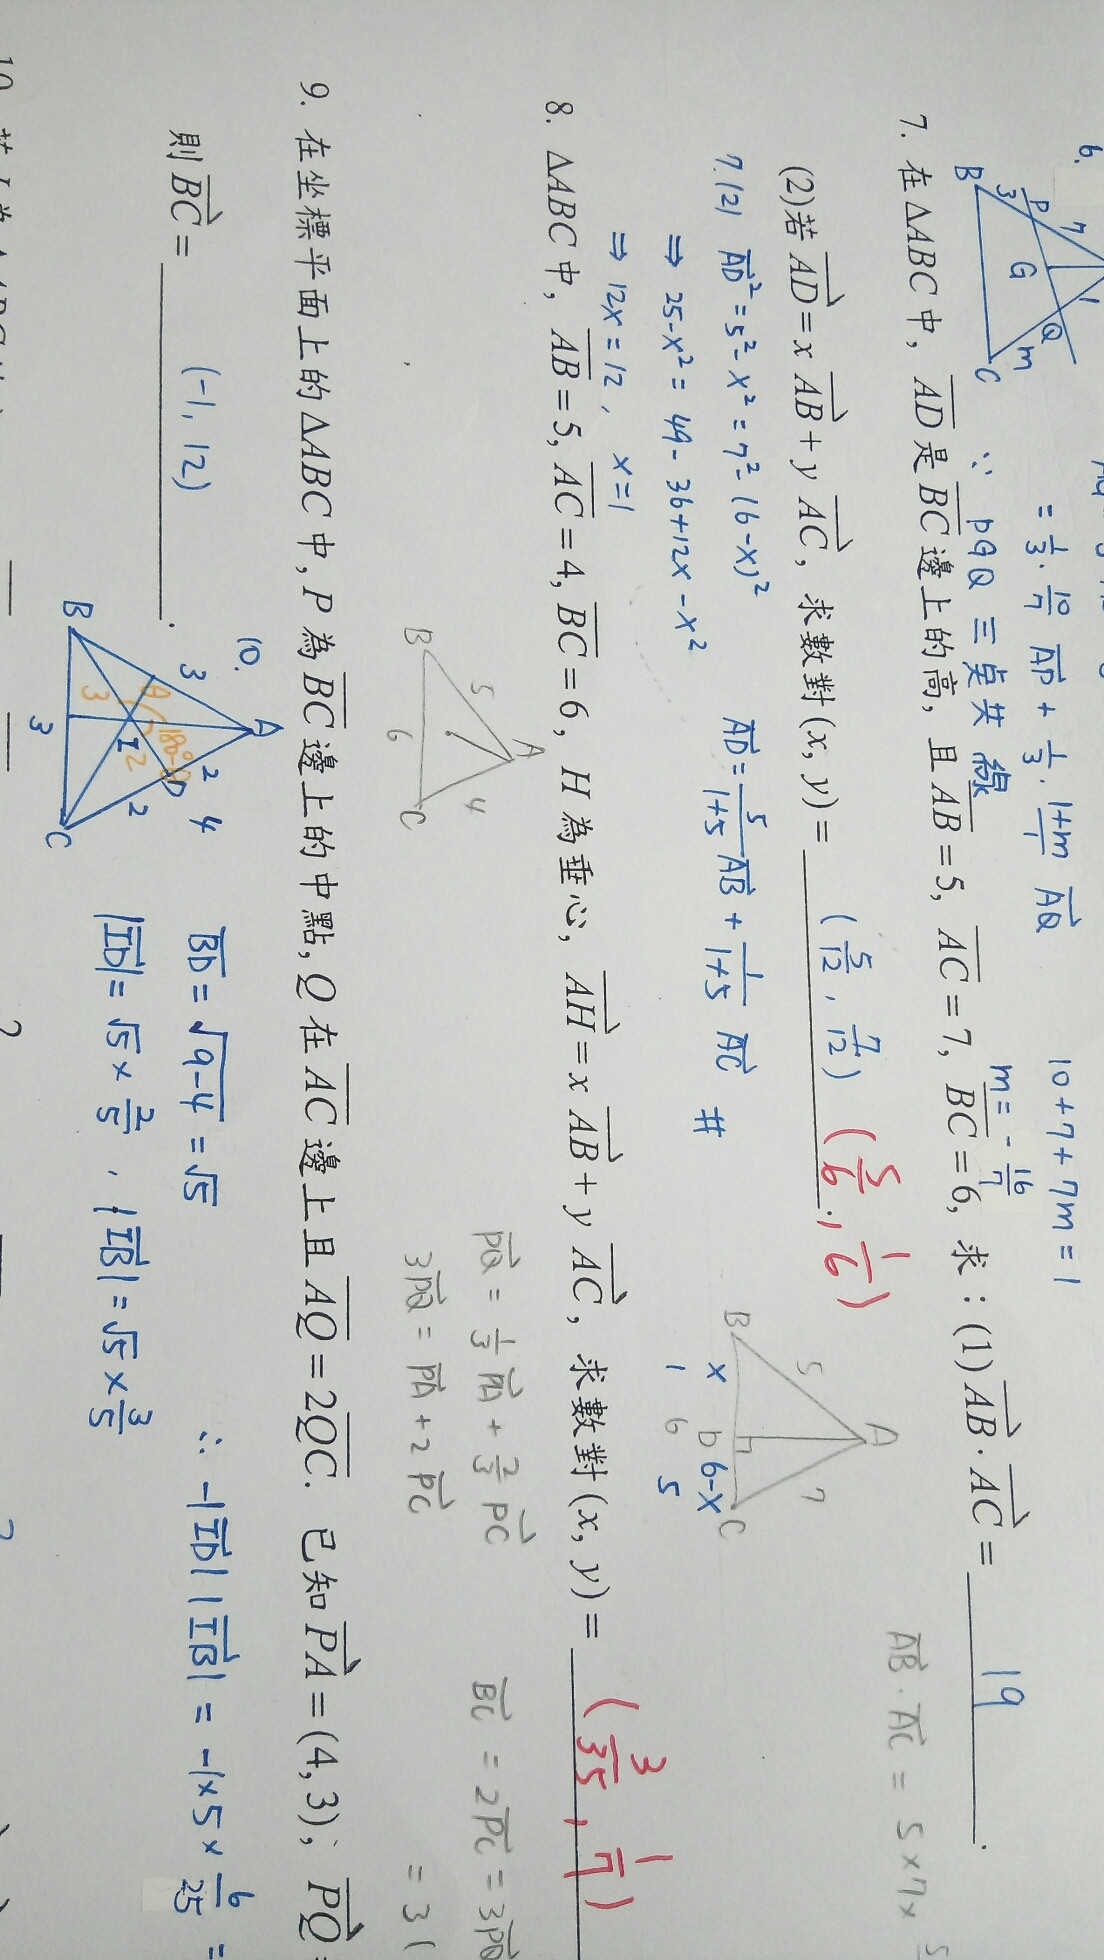 6.
B 3 P 7 G 1 Q m C
= 1/3 · 10/7 AP + 1/3 · (1+m)/1 AQ
10+7+7m=1
∵ PGQ 三點共線
m = -16/7
7. 在 △ABC 中, AD 是 BC 邊上的高, 且 AB = 5, AC = 7, BC = 6, 求 : (1) AB · AC = 19 .
AB · AC = 5×7×
(2)若 AD = x AB + y AC, 求數對 (x, y) = (5/12 , 7/12) (5/6 , 1/6)
7.(2) AD² = 5² - x² = 7² - (6-x)²
AD = 5/(1+5) AB + 1/(1+5) AC #
⇒ 25-x² = 49-36+12x-x²
⇒ 12x = 12 , x=1
A 5 7 B x D 6-x C
1 6 5
8. △ABC 中, AB = 5, AC = 4, BC = 6, H 為垂心, AH = x AB + y AC, 求數對 (x, y) = (3/35 , 1/7)
A 5 4 B 6 C
PQ = 1/3 PA + 2/3 PC
3PQ = PA + 2PC
BC = 2PC = 3PQ
= 3(
9. 在坐標平面上的 △ABC 中, P 為 BC 邊上的中點, Q 在 AC 邊上且 AQ = 2QC. 已知 PA = (4, 3), PQ =
則 BC = (-1, 12) .
10.
A 3 2 4 D 2 I 3 2 B 3 C
BD = √(9-4) = √5
|ID| = √5 × 2/5 , |IB| = √5 × 3/5
∴ -|ID| |IB| = -1×5× 6/25 =